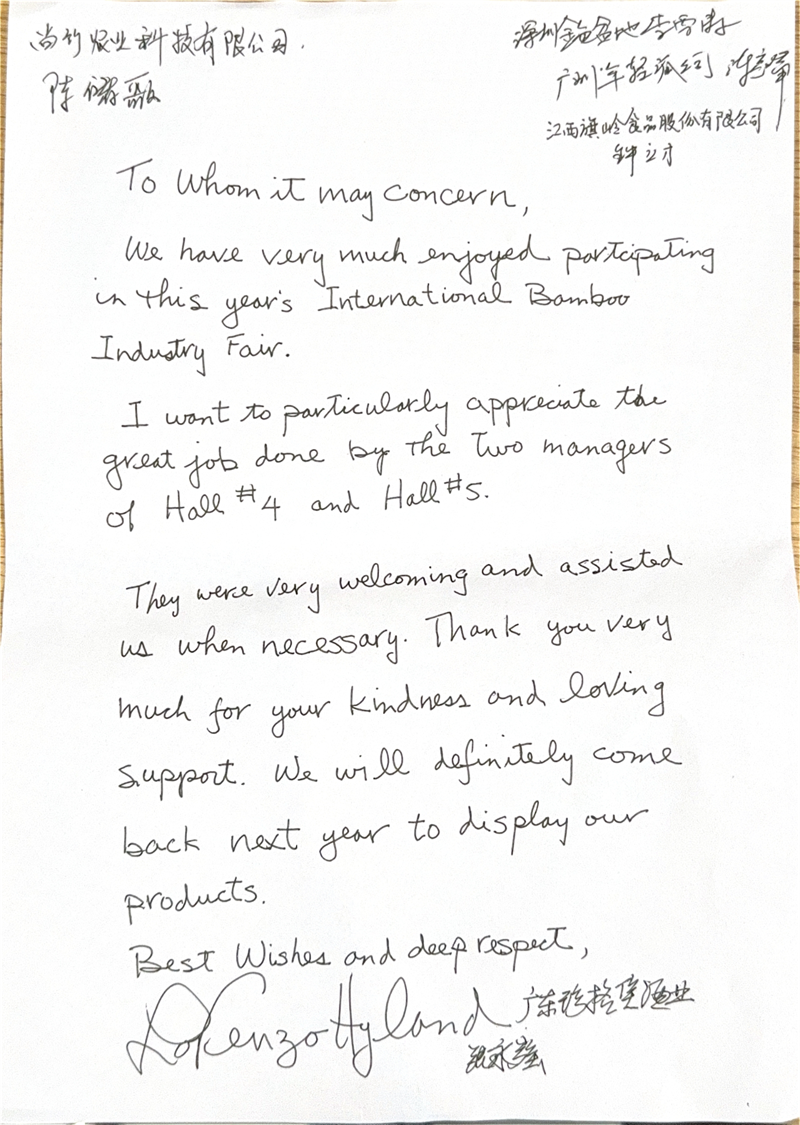 尚竹农业科技有限公司.
陈
深圳
广州 陈
江西旗岭食品股份有限公司
钟立才
To Whom it may concern,
We have very much enjoyed participating
in this year's International Bamboo
Industry Fair.
I want to particularly appreciate the
great job done by the two managers
of Hall #4 and Hall #5.
They were very welcoming and assisted
us when necessary. Thank you very
much for your kindness and loving
support. We will definitely come
back next year to display our
products.
Best Wishes and deep respect,
Lorenzo Hyland
广东 酒业